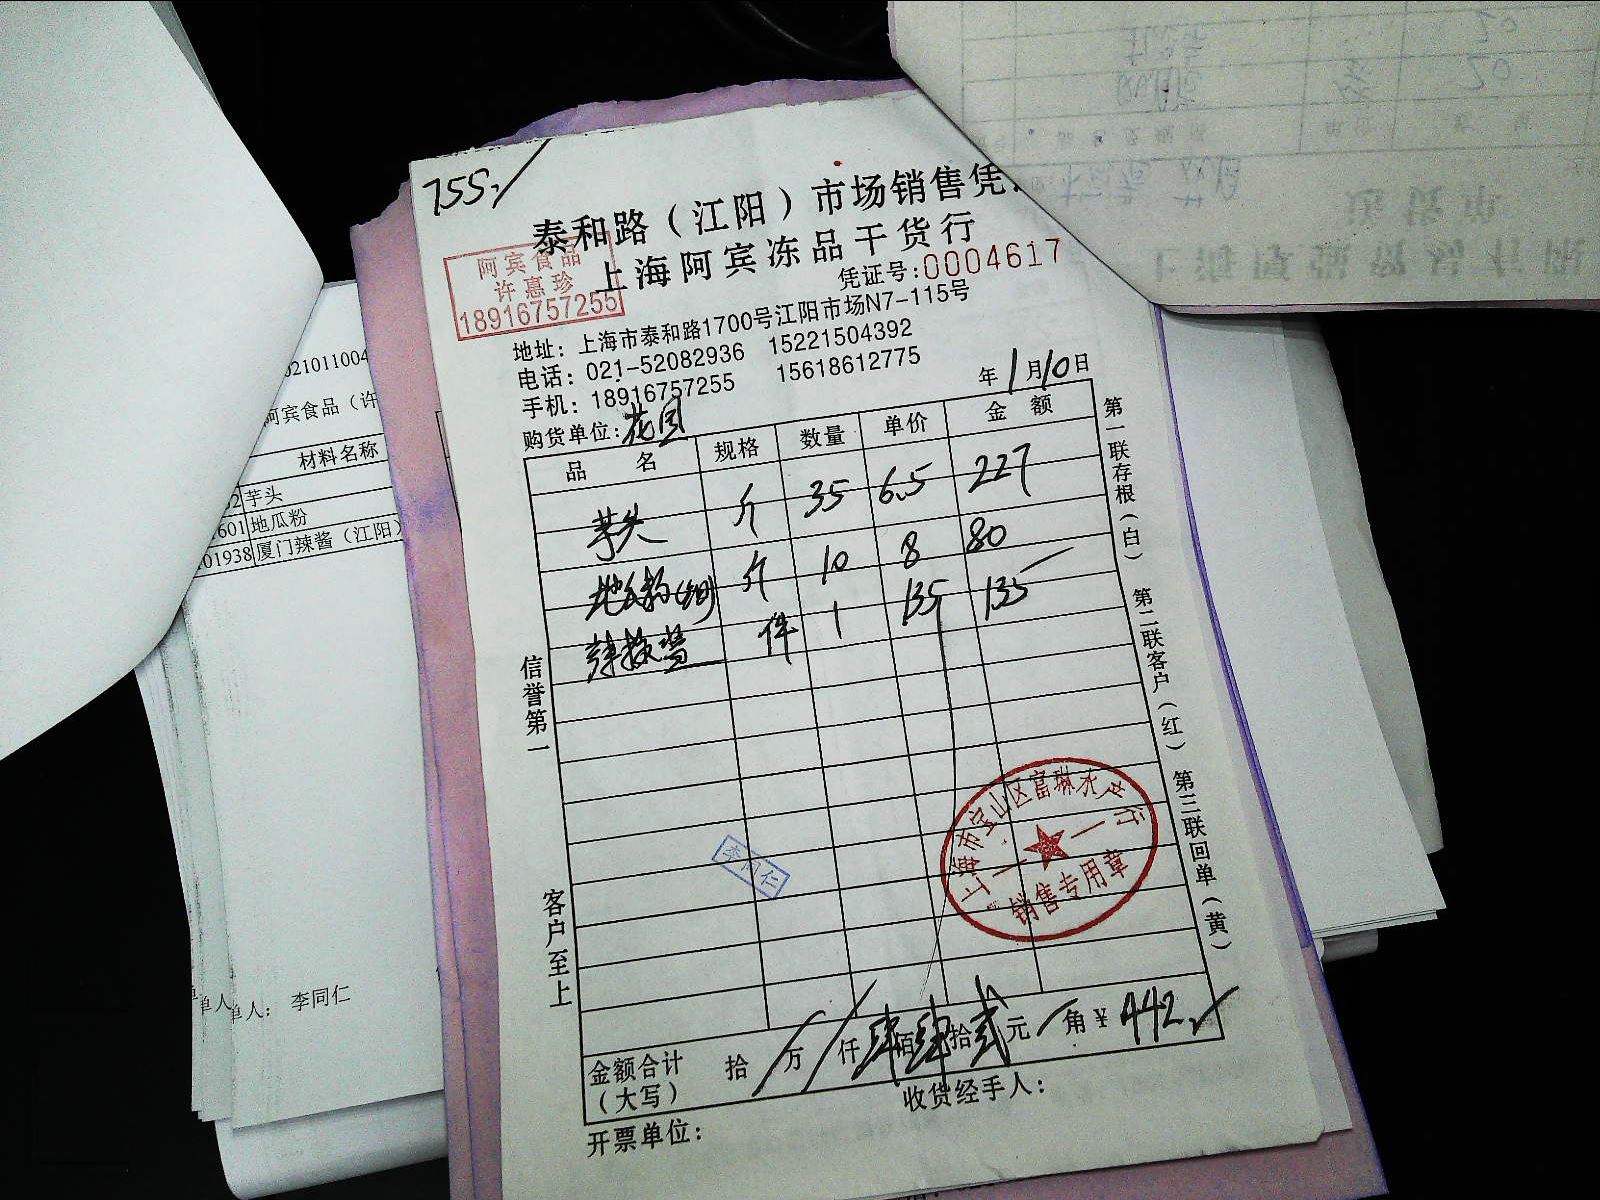 755,
泰和路（江阳）市场销售凭
上海阿宾冻品干货行
阿宾食品
许惠珍
18916757255
凭证号:0004617
地址：上海市泰和路1700号江阳市场N7-115号
电话：021-52082936 15221504392
手机：18916757255 15618612775
购货单位:花园 年1月10日
品 名 规格 数量 单价 金 额
芋头 斤 35 6.5 227
地瓜粉(细) 斤 10 8 80
辣椒酱 件 1 135 135
信誉第一
客户至上
第一联存根(白) 第二联客户(红) 第三联回单(黄)
李同仁
上海市宝山区富琳水产行
销售专用章
金额合计 拾 万 仟肆佰肆拾贰元 角¥442
（大写）
收货经手人：
开票单位：
021011004
阿宾食品（许
材料名称
2 芋头
601 地瓜粉
01938 厦门辣酱（江阳）
单人
单人： 李同仁
20
20